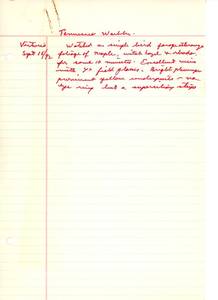 Tennessee Warbler
Ventures Watched a single bird forage through
Sept 18/92 foliage of maple, witch hazel &
for some 10 minutes. Excellent views
with 7x field glasses. Bright plumage
prominent yellow underparts - no
eye ring but a superciliary stripe